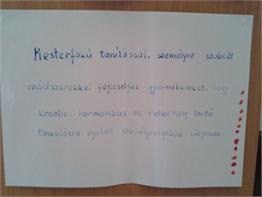 Mesterfokú tanítással, személyre szabott
módszerekkel fejlesztjük gyermekeinket, hogy
kreatív, harmonikus és
tanulásra nyitott váljanak